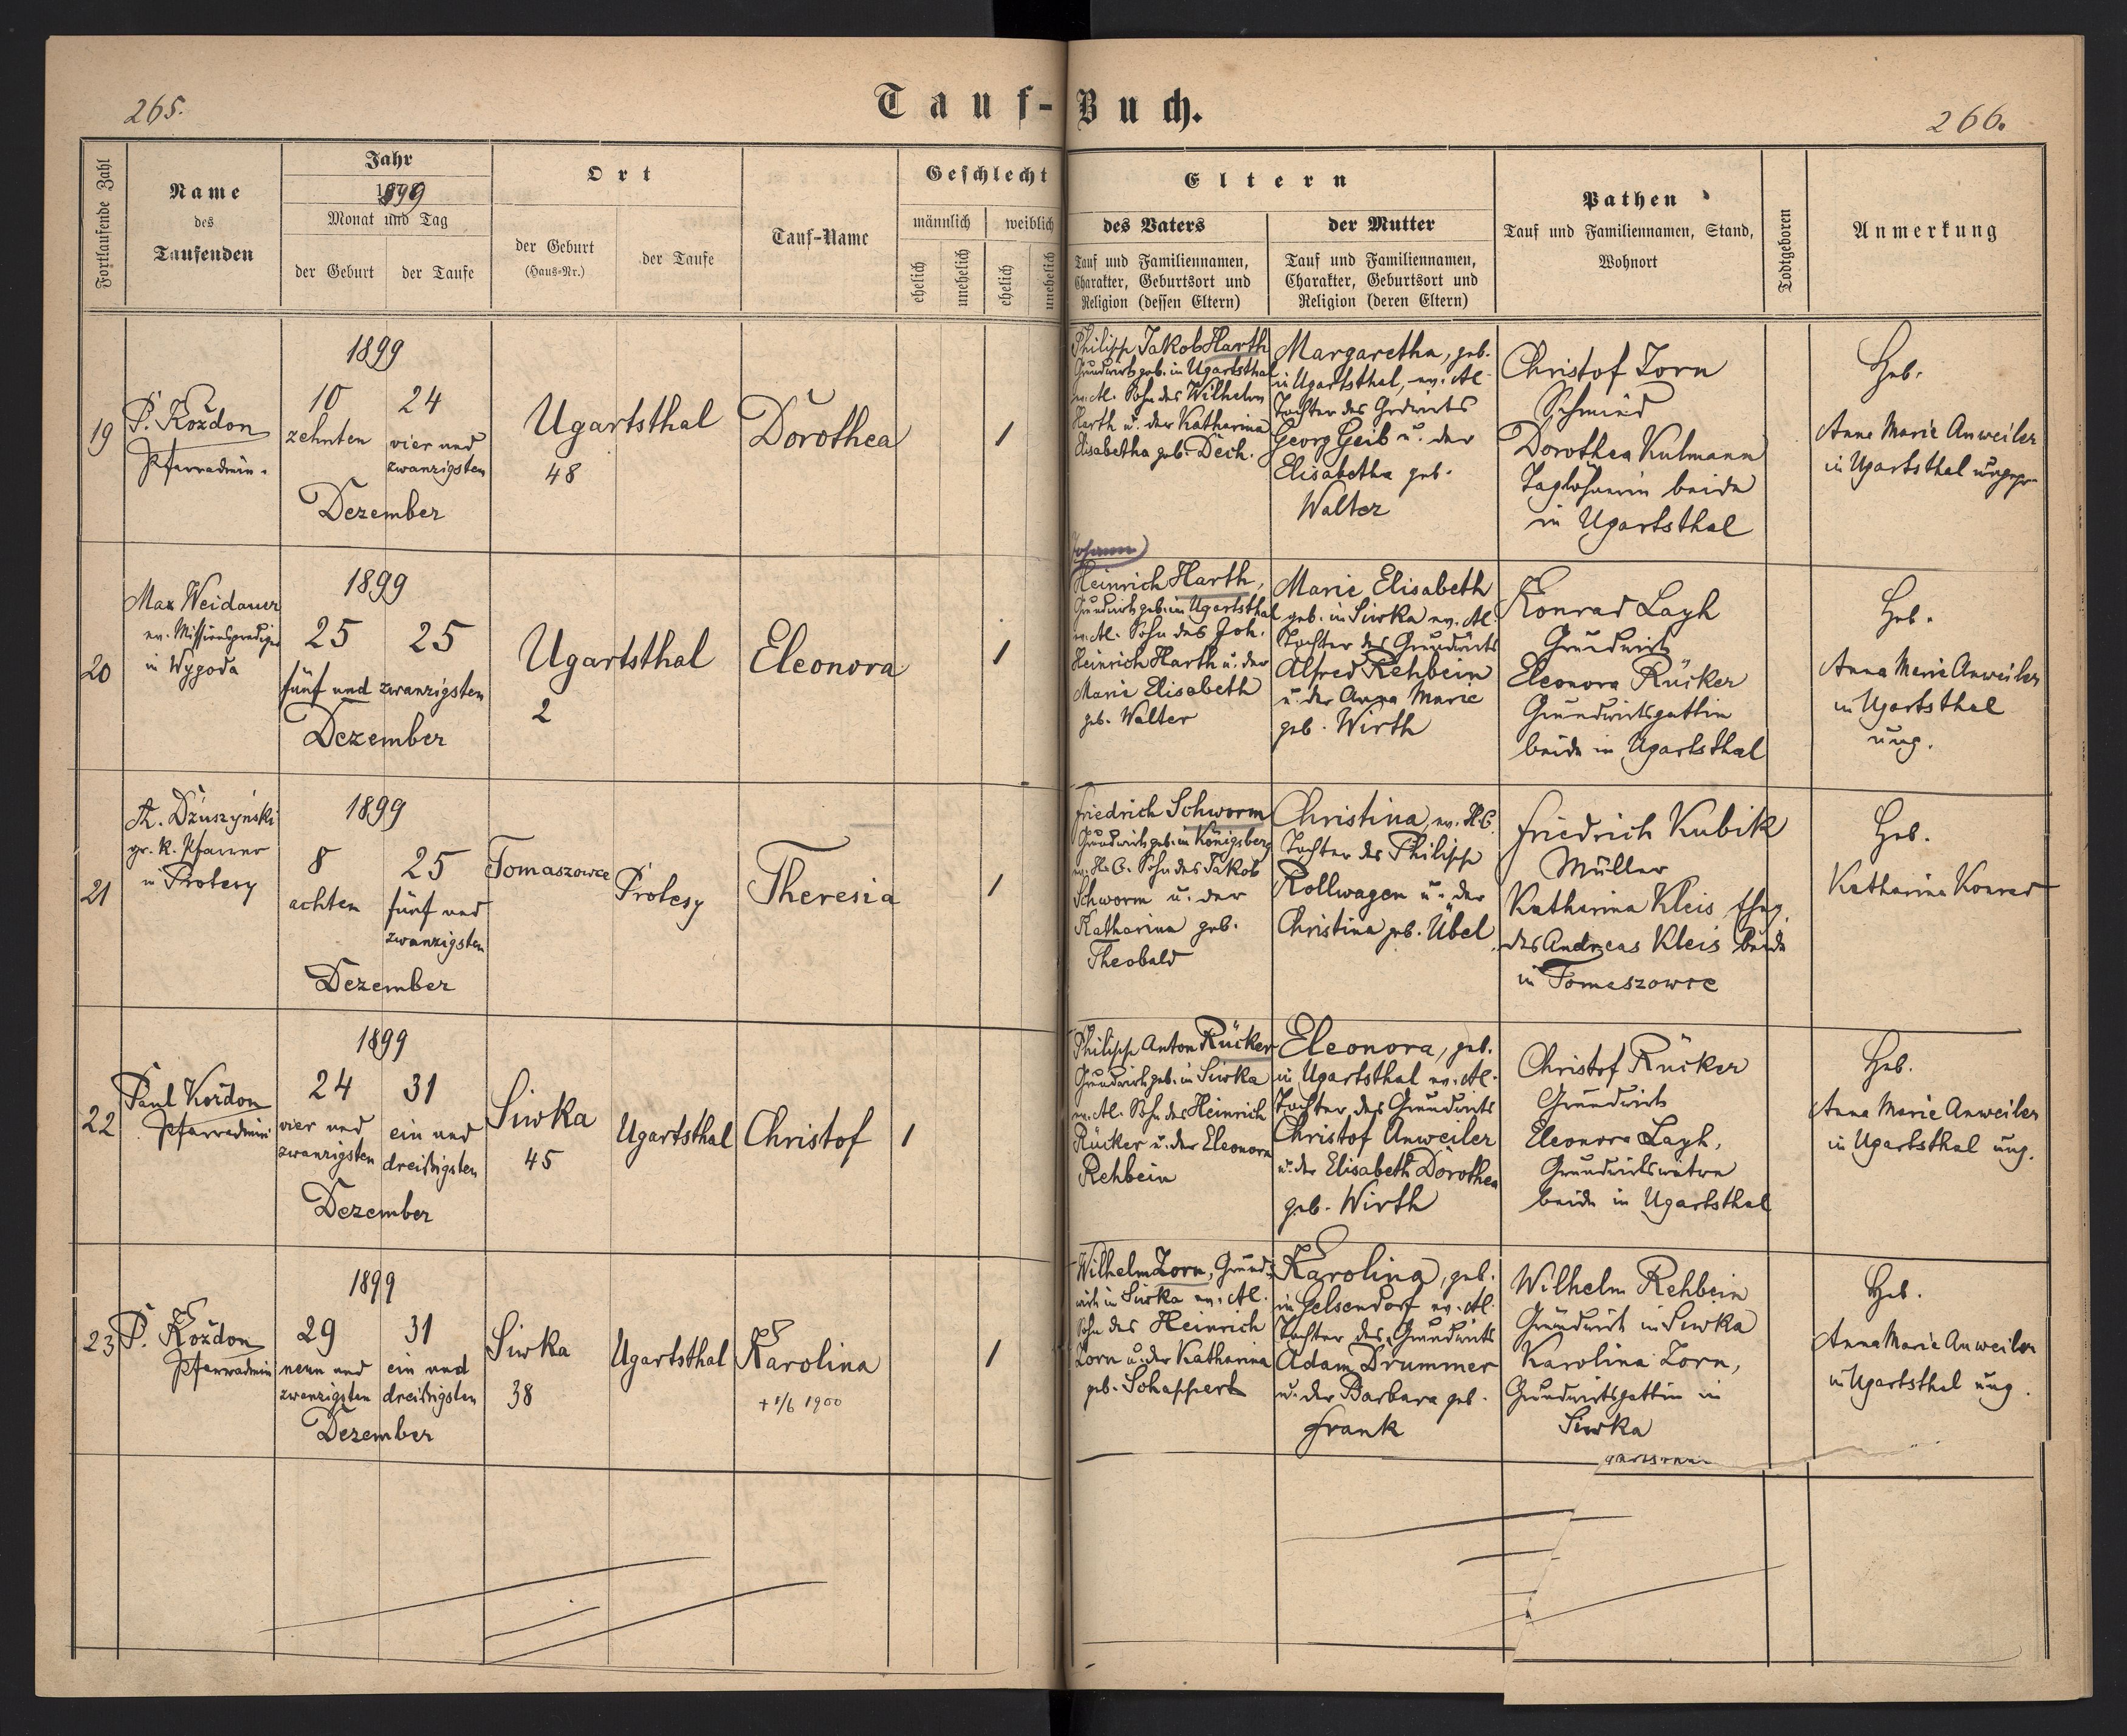 265.
Tauf-Buch.
266.
Fortlaufende Zahl
Name
des
Taufenden
Jahr
1899
Monat und Tag
der Geburt
der Taufe
Ort
der Geburt
(Haus-Nr.)
der Taufe
Tauf-Name
Geschlecht
männlich
weiblich
ehelich
unehelich
ehelich
unehelich
Eltern
des Vaters
Tauf und Familiennamen,
Charakter, Geburtsort und
Religion (dessen Eltern)
der Mutter
Tauf und Familiennamen,
Charakter, Geburtsort und
Religion (deren Eltern)
Pathen
Tauf und Familiennamen, Stand,
Wohnort
Todtgeboren
Anmerkung
19
P. Kożdon
Pfarradmin.
1899
10
zehnten
24
vier und
zwanzigsten
Dezember
Ugartsthal
48
Dorothea
1
Philipp Jakob Harth
Grundwirt geb. in Ugartsthal
ev. Al. Sohn des Wilhelm
Harth u. der Katharina
Elisabetha geb. Dech.
Margaretha, geb.
in Ugartsthal, ev. Al.
Tochter des Grdwirts
Georg Geib u. der
Elisabetha geb.
Walter
Christof Zorn
Schmied
Dorothea Kulmann
Taglöhnerin beide
in Ugartsthal
Heb.
Anna Marie Anweiler
in Ugartsthal ungepr.
20
Max Weidauer
ev. Missionsprediger
in Wygoda
1899
25
25
fünf und zwanzigsten
Dezember
Ugartsthal
2
Eleonora
1
Johann
Heinrich Harth,
Grundwirt geb. in Ugartsthal
ev. Al. Sohn des Joh.
Heinrich Harth u. der
Marie Elisabeth
geb. Walter
Marie Elisabeth
geb. in Siwka ev. Al.
Tochter des Grundwirts
Alfred Rehbein
u. der Anna Marie
geb. Wirth
Konrad Layh
Grundwirt
Eleonora Rücker
Grundwirtsgattin
beide in Ugartsthal
Heb.
Anna Marie Anweiler
in Ugartsthal
ung.
21
Dżuszyński
gr. k. Pfarrer
in Protesy
1899
8
achten
25
fünf und
zwanzigsten
Dezember
Tomaszowce
Protesy
Theresia
1
Friedrich Schworm
Grundwirt geb. in Königsberg
ev. H. C. Sohn des Jakob
Schworm u. der
Katharina geb.
Theobald
Christina, ev. H. C.
Tochter des Philipp
Rollwagen u. der
Christina geb. Übel
Friedrich Kubik
Müller
Katharina Kleis Eheg.
des Andreas Kleis beide
in Tomaszowce
Heb.
Katharina Konrad
22
Paul Kożdon
Pfarradmin
1899
24
vier und
zwanzigsten
31
ein und
dreißigsten
Dezember
Siwka
45
Ugartsthal
Christof
1
Philipp Anton Rücker
Grundwirt geb. in Siwka
ev. Al. Sohn des Heinrich
Rücker u. der Eleonora
Rehbein
Eleonora, geb.
in Ugartsthal ev. Al.
Tochter des Grundwirts
Christof Anweiler
u. der Elisabeth Dorothea
geb. Wirth
Christof Rücker
Grundwirt
Eleonora Layh,
Grundwirtswitwe
beide in Ugartsthal
Heb.
Anna Marie Anweiler
in Ugartsthal ung.
23
P. Kożdon
Pfarradmin
1899
29
neun und
zwanzigsten
31
ein und
dreißigsten
Dezember
Siwka
38
Ugartsthal
Karolina
+ 1/6 1900
1
Wilhelm Zorn, Grund-
wirt in Siwka ev. Al.
Sohn des Heinrich
Zorn u. der Katharina
geb. Schappert
Karolina, geb.
in Gelsendorf ev. Al.
Tochter des Grundwirts
Adam Drummer
u. der Barbara geb.
Frank
Wilhelm Rehbein
Grundwirt in Siwka
Karolina Zorn,
Grundwirtsgattin in
Siwka
Heb.
Anna Marie Anweiler
in Ugartsthal ung.